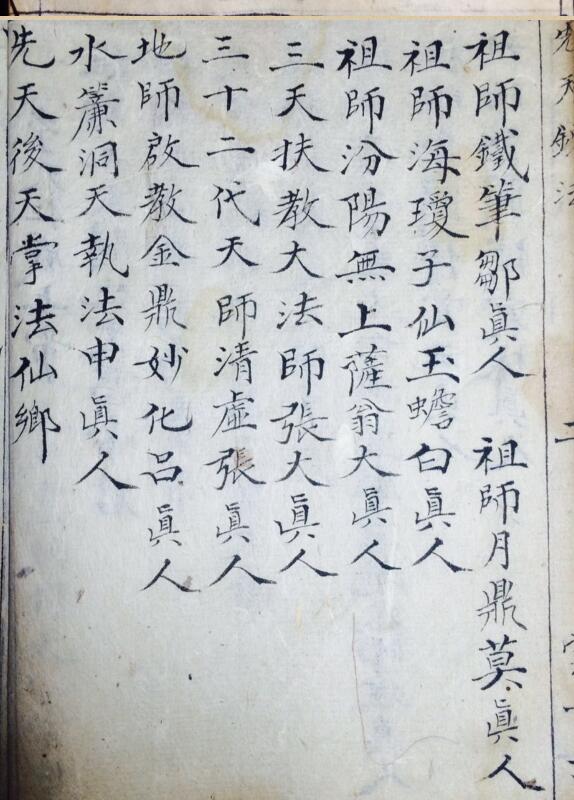 祖師鐵筆鄒眞人 祖師月鼎莫眞人
祖師海瓊子仙玉蟾白眞人
祖師汾陽無上薩翁大眞人
三天扶教大法師張大眞人
三十二代天師清虛張眞人
地師啟教金鼎妙化呂眞人
水簾洞天執法申眞人
先天後天掌法仙鄉